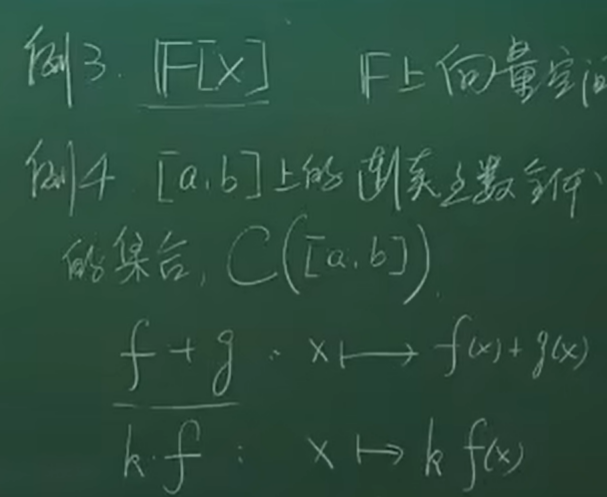 例3. 𝔽[x] 𝔽上向量空间
例4 [a,b]上的连续函数全体
的集合, C([a,b]).
f+g : x ⟼ f(x)+g(x)
k·f : x ↦ k f(x)